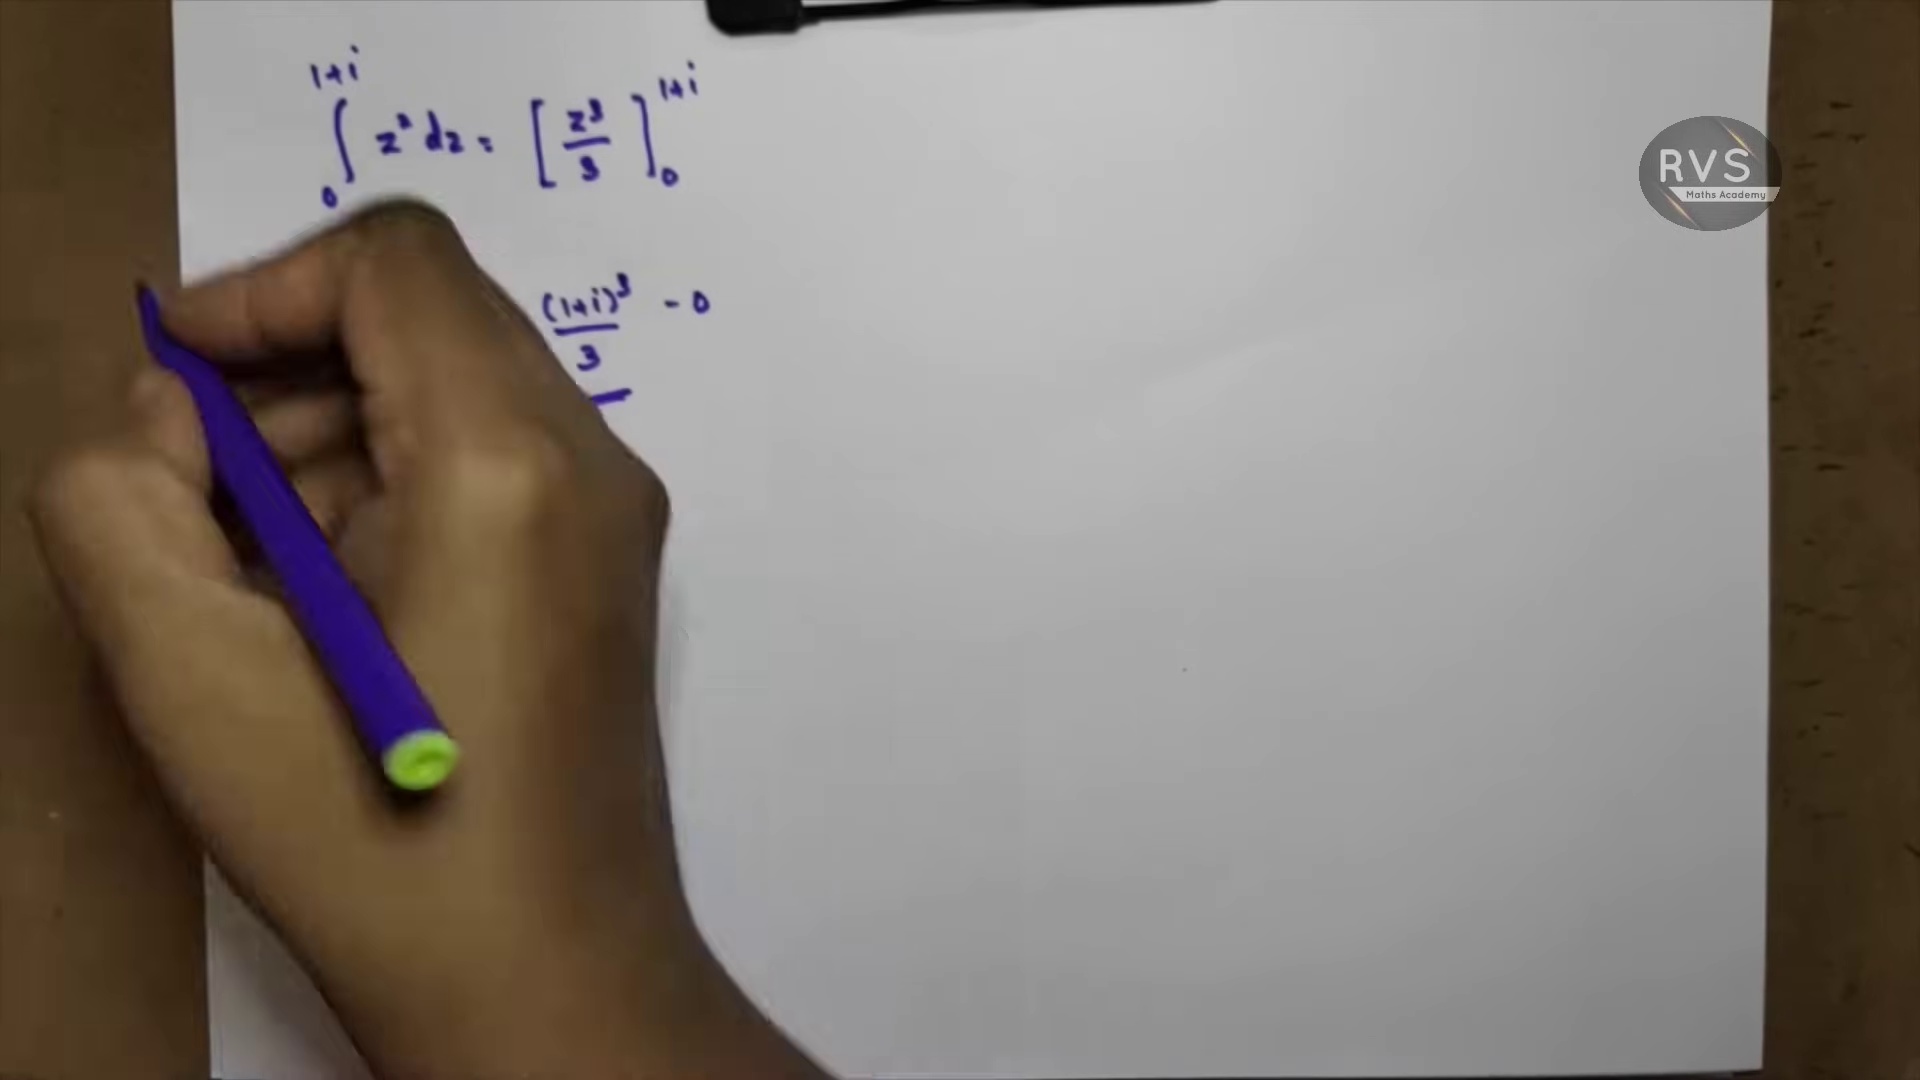 1+i 1+i
∫ z² dz = [ z³/3 ]
0 0
(1+i)³/3 - 0
RVS
Maths Academy